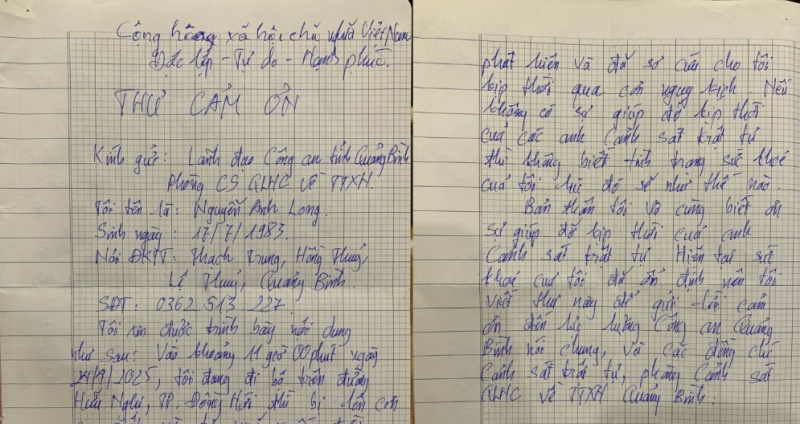 Cộng hòa xã hội chủ nghĩa Việt Nam
Độc lập - Tự do - Hạnh phúc.
THƯ CẢM ƠN
Kính gửi: Lãnh đạo Công an tỉnh Quảng Bình
Phòng CS QLHC về TTXH.
Tôi tên là: Nguyễn Anh Long.
Sinh ngày: 17/7/1983.
Nơi ĐKTT: Thạch Trung, Hồng Thuỷ,
Lệ Thuỷ, Quảng Bình.
SĐT: 0362.513.227.
Tôi xin được trình bày nội dung
như sau: Vào khoảng 11 giờ 00 phút ngày
24/9/2025, tôi đang đi bộ trên đường
Hữu Nghị, TP. Đồng Hới thì bị lên cơn
phát hiện và đã sơ cứu cho tôi
kịp thời qua cơn nguy kịch. Nếu
không có sự giúp đỡ kịp thời
của các anh Cảnh sát trật tự
thì không biết tình trạng sức khoẻ
của tôi lúc đó sẽ như thế nào.
Bản thân tôi vô cùng biết ơn
sự giúp đỡ kịp thời của anh
Cảnh sát trật tự. Hiện tại sức
khoẻ của tôi đã ổn định nên tôi
viết thư này để gửi lời cảm
ơn đến lực lượng Công an Quảng
Bình nói chung, và các đồng chí
Cảnh sát trật tự, phòng Cảnh sát
QLHC về TTXH Quảng Bình.